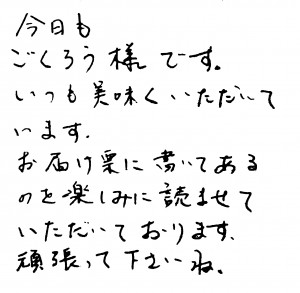 今日も
ごくろう様です。
いつも美味くいただいて
います.
お届け票に書いてある
のを楽しみに読ませて
いただいております.
頑張って下さいね。